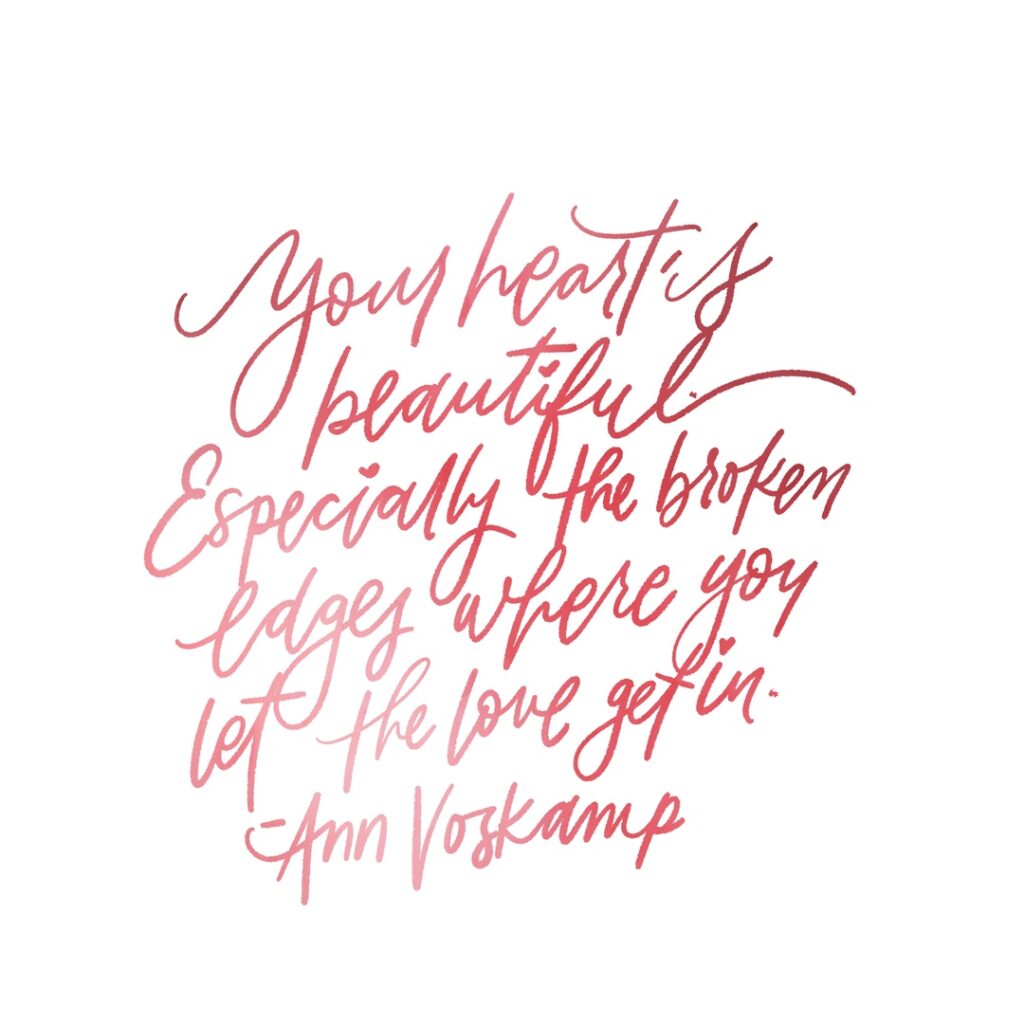 Your heart is
beautiful.
Especially the broken
edges where you
let the love get in.
-Ann Voskamp